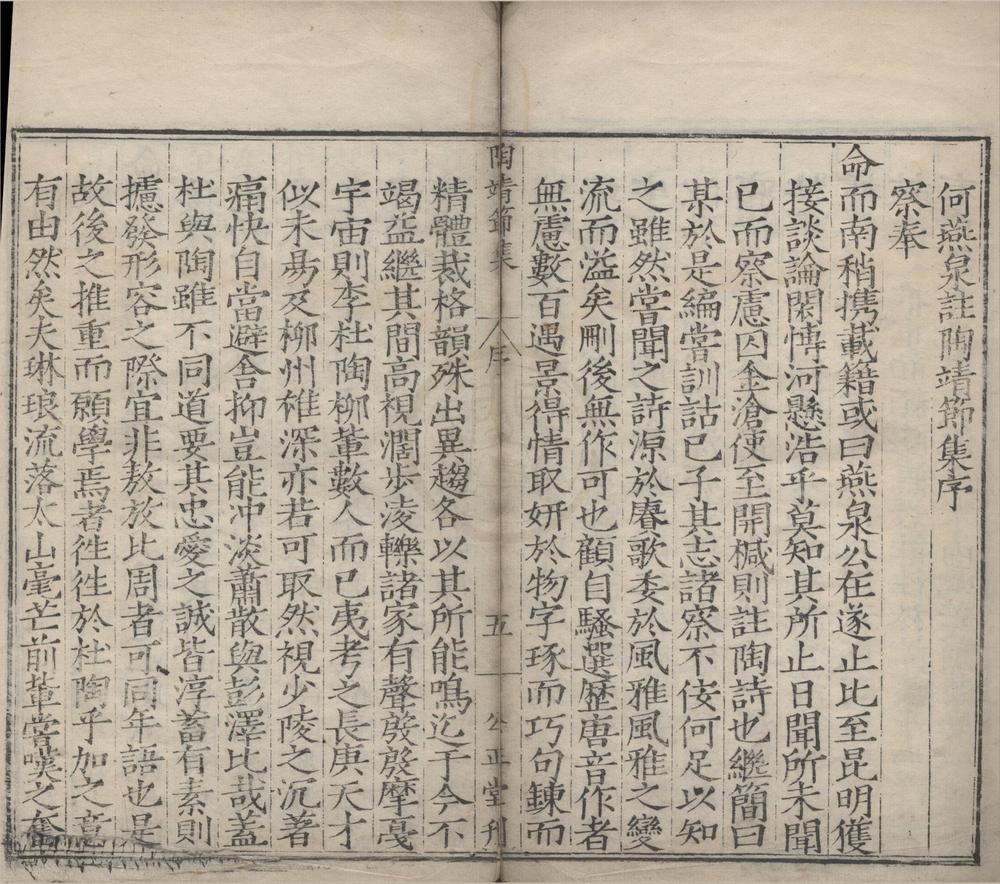 何燕泉註陶靖節集序
察奉
命而南稍携載籍或曰燕泉公在遂止比至昆明獲
接談論閎愽河懸浩乎莫知其所止日聞所未聞
已而察慮囚金滄使至開椷則註陶詩也繼簡曰
某於是編嘗訓詁已子其志諸察不佞何足以知
之雖然嘗聞之詩源於賡歌委於風雅風雅之變
流而溢矣刪後無作可也顧自騷選歷唐音作者
無慮數百遇景得情取妍於物字琢而巧句鍊而
陶靖節集 序 五 公正堂刊
精體裁格韻殊出異趨各以其所能鳴迄于今不
竭益繼其間高視濶步凌轢諸家有聲殷殷摩戛
宇宙則李杜陶柳輩數人而已夷考之長庚天才
似未易及柳州雄深亦若可取然視少陵之沉著
痛快自當避舍抑豈能冲淡蕭散與彭澤比哉蓋
杜與陶雖不同道要其忠愛之誠皆淳蓄有素則
攄發形容之際宜非敖放比周者可同年語也是
故後之推重而願學焉者徃徃於杜陶乎加之意
有由然矣夫琳琅流落太山毫芒前輩嘗嘆之